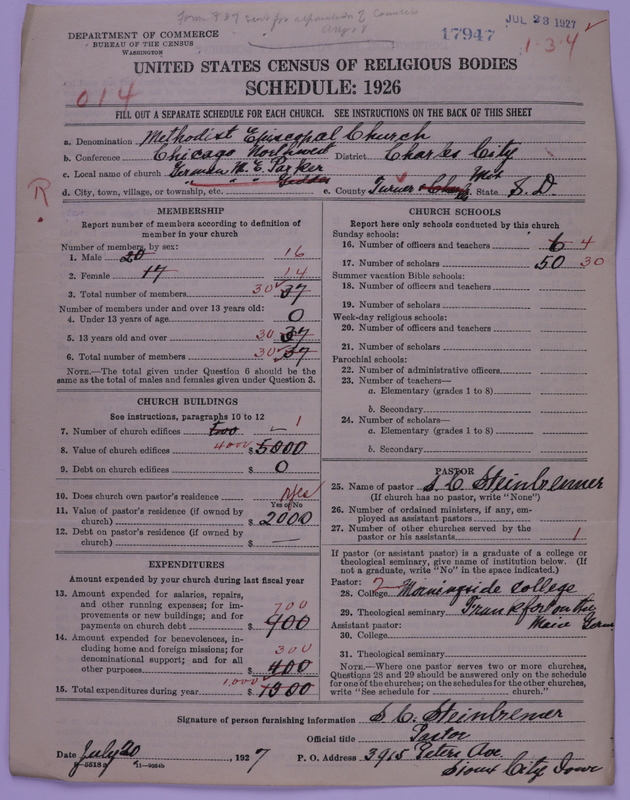 Form 837 sent for
JUL 23 1927
17947
1-3-4
DEPARTMENT OF COMMERCE
BUREAU OF THE CENSUS
WASHINGTON
UNITED STATES CENSUS OF RELIGIOUS BODIES
SCHEDULE: 1926
014
FILL OUT A SEPARATE SCHEDULE FOR EACH CHURCH. SEE INSTRUCTIONS ON THE BACK OF THIS SHEET
a. Denomination Methodist Episcopal Church
b. Conference Chicago Northwest District Charles City
c. Local name of church German M. E. Parker
d. City, town, village, or township, etc. " " " e. County Turner State S. D.
R
MEMBERSHIP
Report number of members according to definition of
member in your church
Number of members, by sex:
1. Male 20 16
2. Female 17 14
3. Total number of members 30 37
Number of members under and over 13 years old:
4. Under 13 years of age 0
5. 13 years old and over 30 37
6. Total number of members 30 37
NOTE.—The total given under Question 6 should be the
same as the total of males and females given under Question 3.
CHURCH BUILDINGS
See instructions, paragraphs 10 to 12
7. Number of church edifices 1
8. Value of church edifices 4000 $ 5000
9. Debt on church edifices $ 0
10. Does church own pastor's residence yes
Yes or No
11. Value of pastor's residence (if owned by
church) $ 2000
12. Debt on pastor's residence (if owned by
church) $ —
EXPENDITURES
Amount expended by your church during last fiscal year
13. Amount expended for salaries, repairs,
and other running expenses; for im-
provements or new buildings; and for
payments on church debt $ 700 900
14. Amount expended for benevolences, in-
cluding home and foreign missions; for
denominational support; and for all
other purposes $ 300 400
15. Total expenditures during year 1,000 $ 1300
CHURCH SCHOOLS
Report here only schools conducted by this church
Sunday schools:
16. Number of officers and teachers 6 4
17. Number of scholars 50 30
Summer vacation Bible schools:
18. Number of officers and teachers
19. Number of scholars
Week-day religious schools:
20. Number of officers and teachers
21. Number of scholars
Parochial schools:
22. Number of administrative officers
23. Number of teachers—
a. Elementary (grades 1 to 8)
b. Secondary
24. Number of scholars—
a. Elementary (grades 1 to 8)
b. Secondary
PASTOR
25. Name of pastor S. C. Steinbrenner
(If church has no pastor, write "None")
26. Number of ordained ministers, if any, em-
ployed as assistant pastors
27. Number of other churches served by the
pastor or his assistants 1
If pastor (or assistant pastor) is a graduate of a college or
theological seminary, give name of institution below. (If
not a graduate, write "No" in the space indicated.)
Pastor:
28. College Morningside College
29. Theological seminary Frankfort on the
Main Germ
Assistant pastor:
30. College
31. Theological seminary
NOTE.—Where one pastor serves two or more churches,
Questions 28 and 29 should be answered only on the schedule
for one of the churches; on the schedules for the other churches,
write "See schedule for church."
Signature of person furnishing information S. C. Steinbrenner
Official title Pastor
Date July 20, 1927 P. O. Address 3915 Peters Ave.
Sioux City Iowa
8-5518a 11-9554b